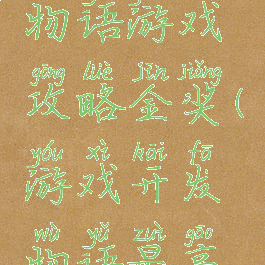 物语游戏
gōng lüè jīn jiǎng
攻略金奖(
yóu xì kāi fā
游戏开发
wù yǔ zuì gāo
物语最高